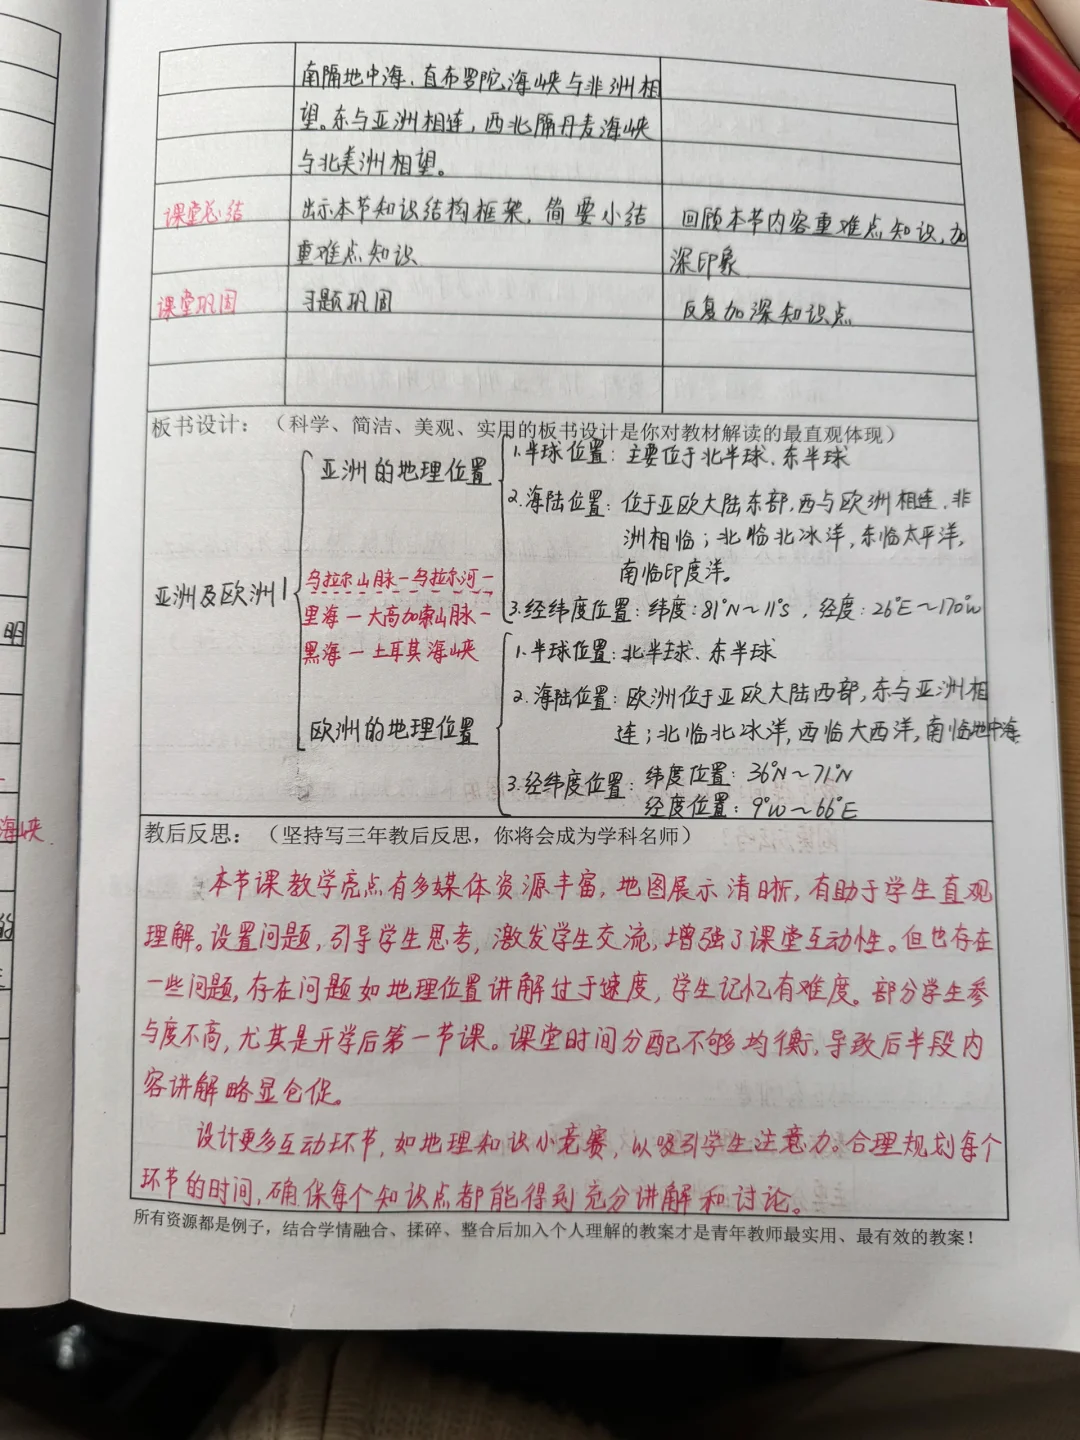 南隔地中海、直布罗陀海峡与非洲相
望。东与亚洲相连，西北隔丹麦海峡
与北美洲相望。
课堂总结 出示本节知识结构框架，简要小结 回顾本节内容重难点知识，加
重难点知识 深印象
课堂巩固 习题巩固 反复加深知识点
板书设计：（科学、简洁、美观、实用的板书设计是你对教材解读的最直观体现）
亚洲的地理位置 1.半球位置：主要位于北半球、东半球
2.海陆位置：位于亚欧大陆东部，西与欧洲相连、非
洲相临；北临北冰洋，东临太平洋，
南临印度洋。
亚洲及欧洲 乌拉尔山脉—乌拉尔河—
里海—大高加索山脉—
3.经纬度位置：纬度：81°N～11°S，经度：26°E～170°W
黑海—土耳其海峡
1.半球位置：北半球、东半球
2.海陆位置：欧洲位于亚欧大陆西部，东与亚洲相
欧洲的地理位置 连；北临北冰洋，西临大西洋，南临地中海
3.经纬度位置：纬度位置：36°N～71°N
经度位置：9°W～66°E
教后反思：（坚持写三年教后反思，你将会成为学科名师）
本节课教学亮点有多媒体资源丰富，地图展示清晰，有助于学生直观
理解。设置问题，引导学生思考，激发学生交流，增强了课堂互动性。但也存在
一些问题，存在问题如地理位置讲解过于速度，学生记忆有难度。部分学生参
与度不高，尤其是开学后第一节课。课堂时间分配不够均衡，导致后半段内
容讲解略显仓促。
设计更多互动环节，如地理知识小竞赛，以吸引学生注意力。合理规划每个
环节的时间，确保每个知识点都能得到充分讲解和讨论。
所有资源都是例子，结合学情融合、揉碎、整合后加入个人理解的教案才是青年教师最实用、最有效的教案！
明
海峡
的